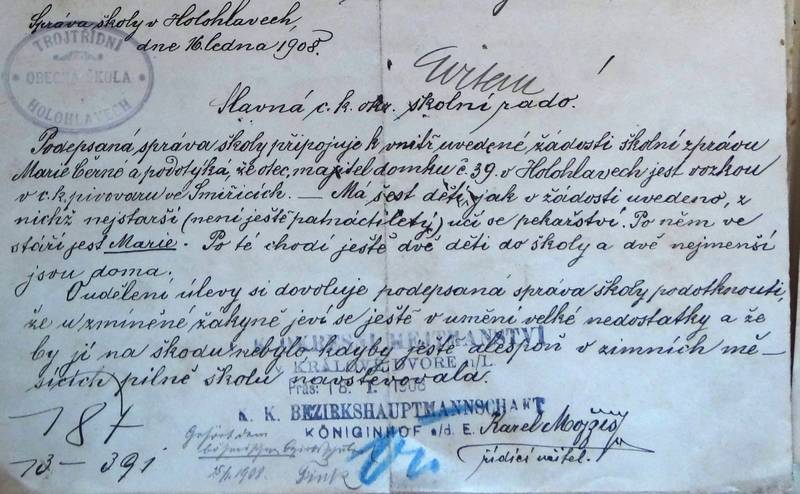 Správa školy v Holohlavech,
dne 16 ledna 1908.
TROJTŘÍDNÍ
OBECNÁ ŠKOLA
HOLOHLAVECH
Slavná c. k. okr. školní rado!
Podepsaná správa školy připojuje k vnitř uvedené žádosti školní zprávu
Marie Černé a podotýká, že otec, majitel domku č. 39. v Holohlavech jest vozkou
v c. k. pivovaru ve Smiřicích. — Má šest dětí, jak v žádosti uvedeno, z
nichž nejstarší (není ještě patnáctiletý) učí se pekařství. Po něm ve
stáří jest Marie. Po té chodí ještě dvě děti do školy a dvě nejmenší
jsou doma.
O udělení úlevy si dovoluje podepsaná správa školy podotknouti,
že u zmíněné žákyně jeví se ještě v umění velké nedostatky a že
by jí na škodu nebylo kdyby ještě alespoň v zimních mě-
sících pilně školu navštěvovala.
HEJTMANSTVÍ
v KRÁLOVÉ DVOŘE n/L
Präs: 18. 1. 1908
K. K. BEZIRKSHAUPTMANNSCHAFT
KÖNIGINHOF a/d. E.
Karel Mojžíš
řídící učitel.
187
13 – 391
Gehört dem